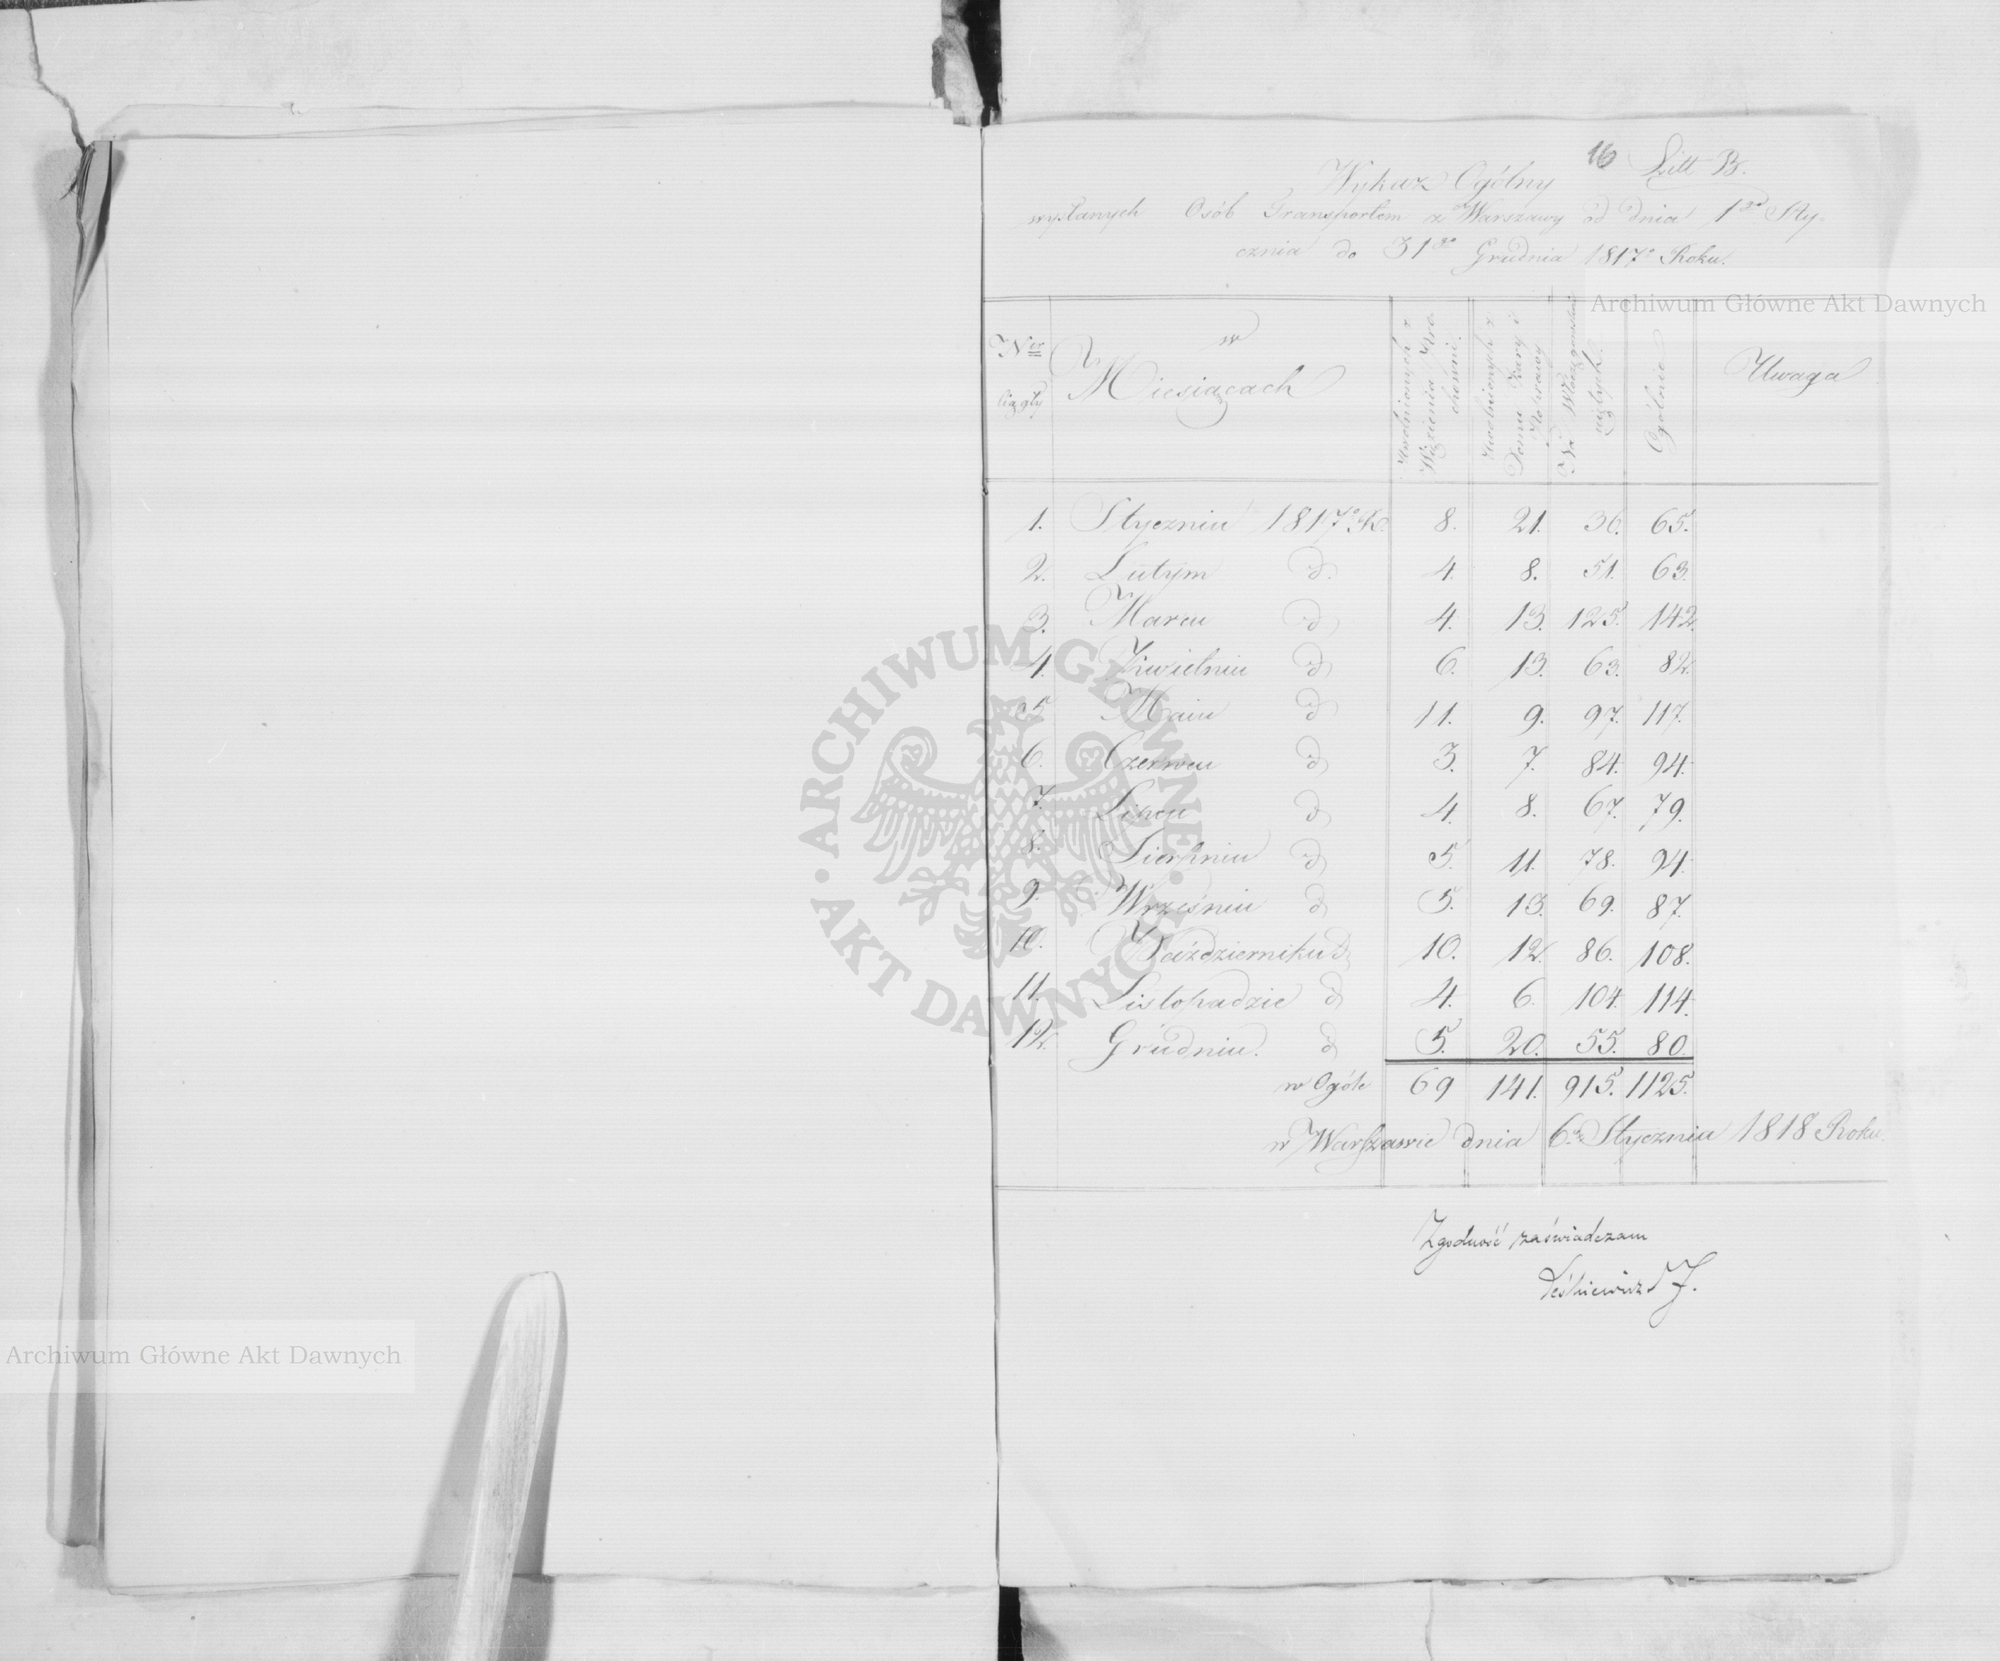 16 Litt B.
Wykaz Ogólny
wysłanych Osób Transportem z Warszawy od dnia 1go Sty-
cznia do 31go Grudnia 1817o Roku.
Nro ciągły | w Miesiącach | Uwolnionych z Więzienia Pro- chowni. | Uwolnionych z Domu Kary i Poprawy | Na Włóczęgostwie ujętych. | Ogólnie | Uwaga
1. Styczniu 1817o R. 8. 21. 36. 65.
2. Lutym d. 4. 8. 51. 63.
3. Marcu d 4. 13. 125. 142.
4. Kwietniu d 6. 13. 63. 82.
5. Maiu d 11. 9. 97. 117.
6. Czerwcu d 3. 7. 84. 94.
7. Lipcu d 4. 8. 67. 79.
8. Sierpniu d 5. 11. 78. 94.
9. Wrześniu d 5. 13. 69. 87.
10. Październiku d 10. 12. 86. 108.
11. Listopadzie d 4. 6. 104. 114.
12. Grudniu. d 5. 20. 55. 80.
w Ogóle 69 141. 915. 1125.
w Warszawie dnia 6o Stycznia 1818 Roku.
Zgodność zaświadczam
Archiwum Główne Akt Dawnych
ARCHIWUM GŁÓWNE
AKT DAWNYCH
Archiwum Główne Akt Dawnych